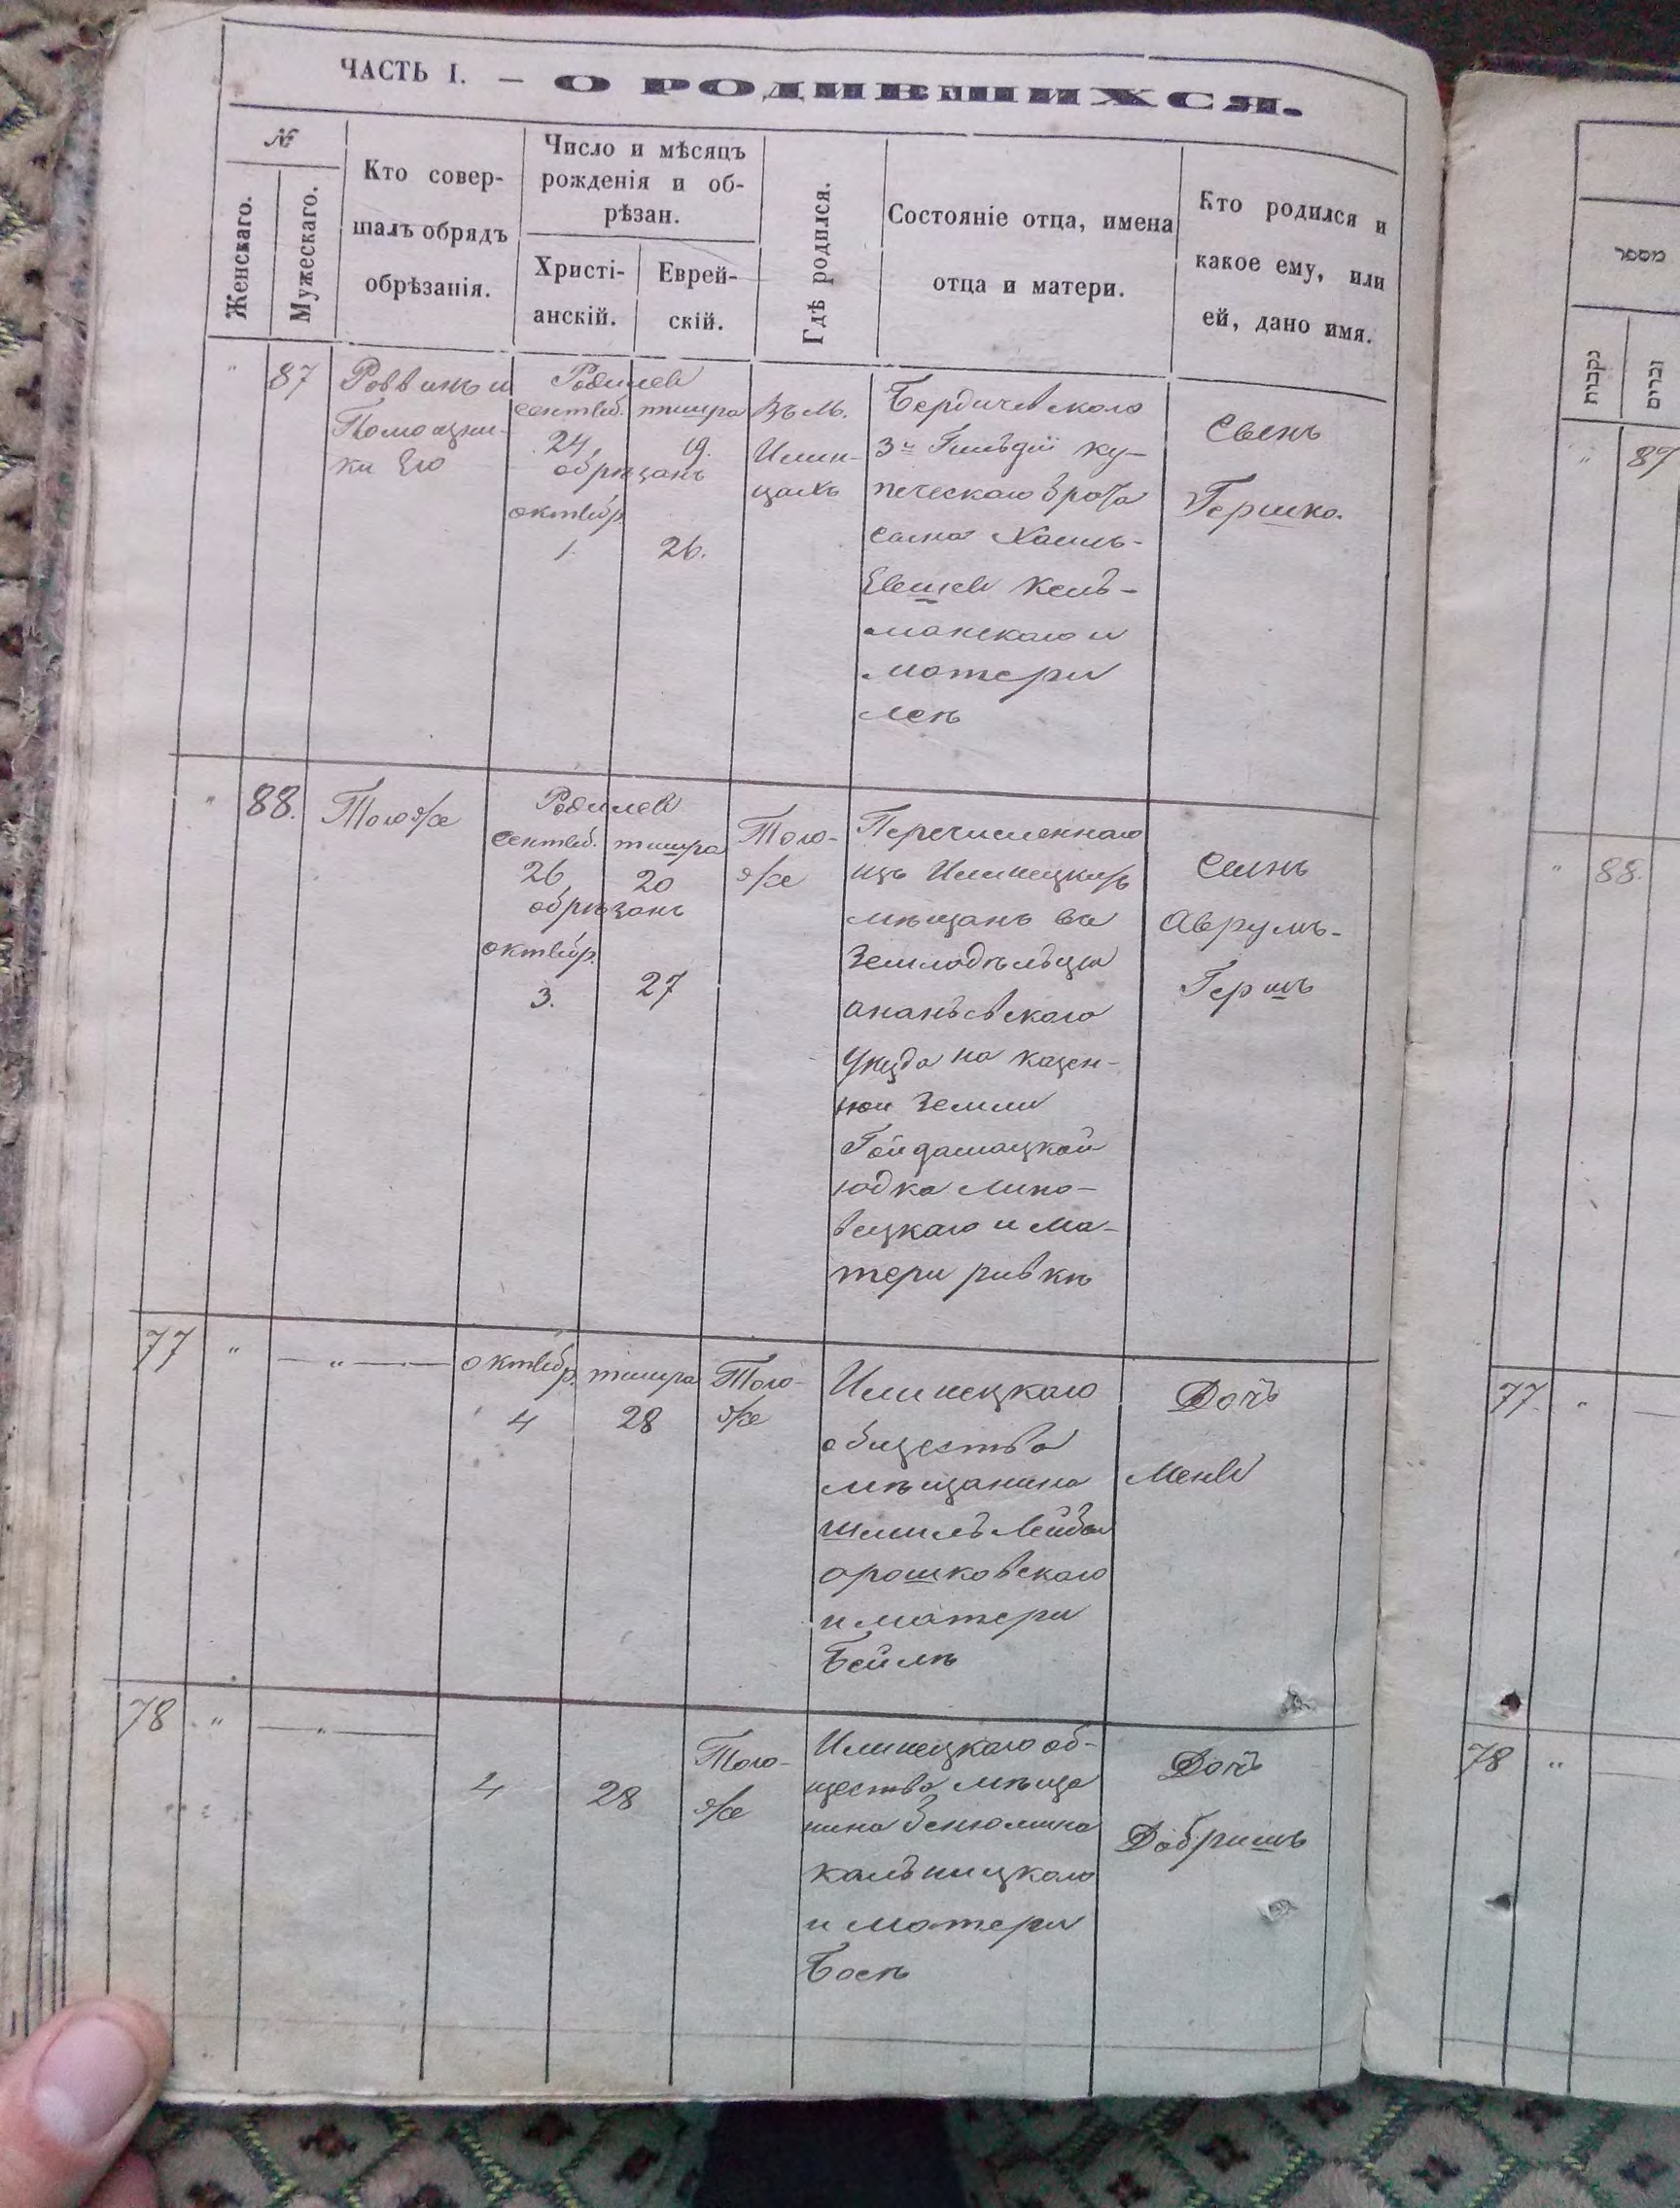 ЧАСТЬ I. — О РОДИВШИХСЯ.
№
Женскаго.
Мужескаго.
Кто совер-
шалъ обрядъ
обрѣзанія.
Число и мѣсяцъ
рожденія и об-
рѣзан.
Христі-
анскій.
Еврей-
скій.
Гдѣ родился.
Состояніе отца, имена
отца и матери.
Кто родился и
какое ему, или
ей, дано имя.
" 87
Раввинъ и
Помощни-
ки Его
Родился
сентяб. тишра
24,
обрѣзанъ
октябр.
1. 26.
Въ м.
Илин-
цахъ
Бердичевского
3й Гильдіи ку-
печескаго брата
Хаимъ-
кель-
манскаго и
матери
леѣ
Сынъ
Гершко.
" 88.
Тогоже
Родился
сентяб. тишра
26 20
обрѣзанъ
октябр.
3. 27
Того-
же
Перечисленнаго
изъ Илинецкихъ
мѣщанъ въ
Земледѣльцы
ананьевскаго
Уѣзда на казен-
ной Земли
Гайдамацкой
юдка липо-
вецкаго и ма-
тери ривкѣ
Сынъ
Аврумъ-
Гершъ
77 "
— " —
октябр. тишра
4 28
Того-
же
Илинецкаго
общества
мѣщанина
шмиль Лейбы
орошковскаго
и матери
Бейлѣ
Дочь
Меня
78 "
— " —
4 28
Того-
же
Илинецкаго об-
щества мѣща
нина Бенюмина
кальницкаго
и матери
Басѣ
Дочь
Добришъ
מספר
נקבות
זכרים
" 87
" 88.
77. "
78 "